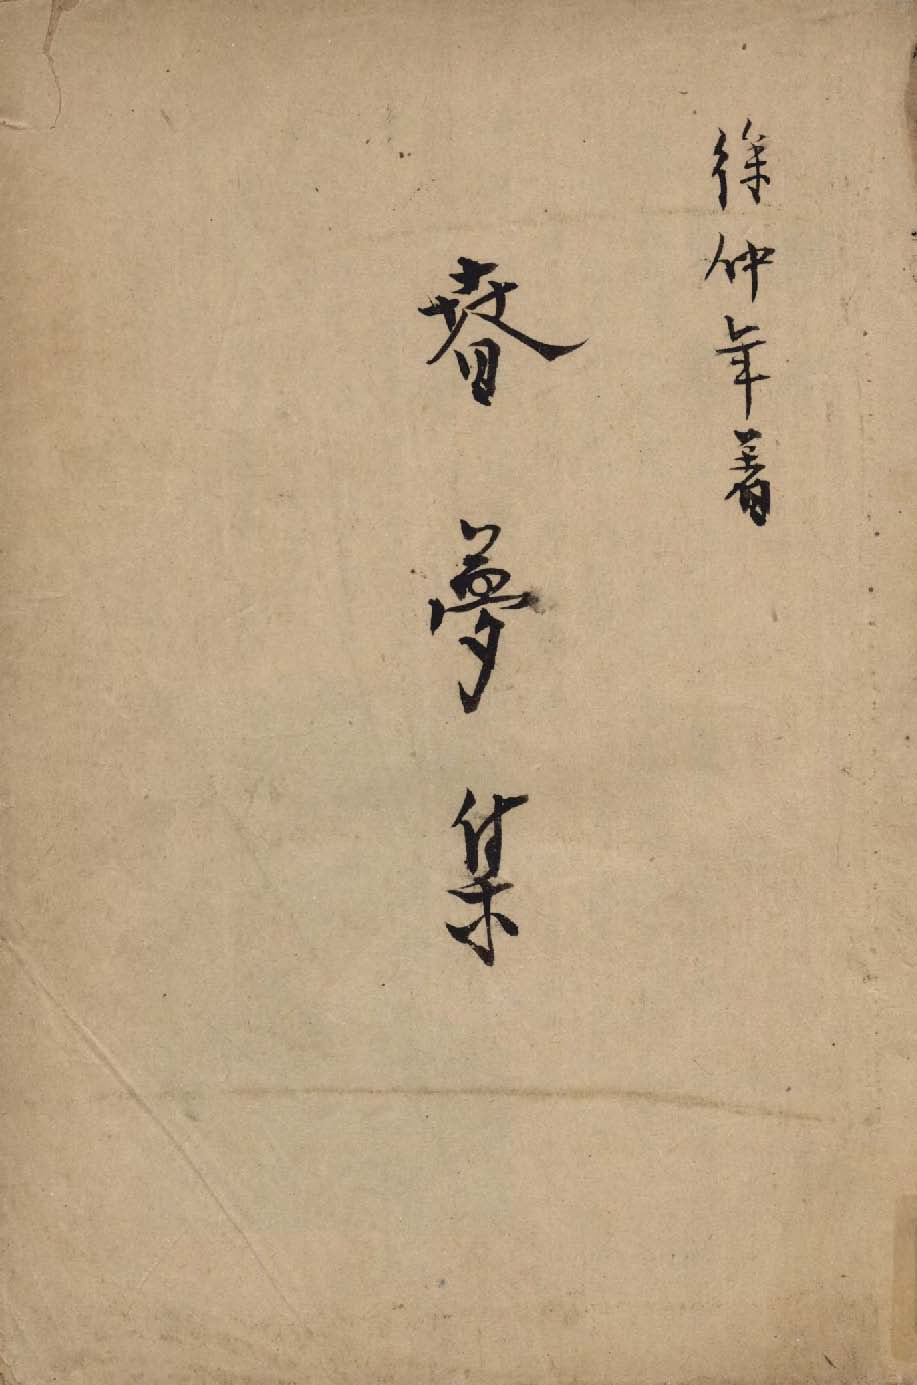 徐仲年著
春夢集